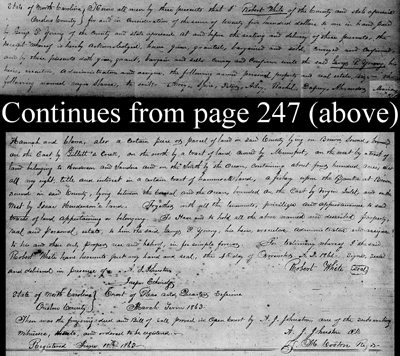 State of North Carolina, Know all men by these presents that I Robert White of the County and state aforesaid
Onslow County for and in Consideration of the sum of twenty five hundred dollars to me in hand paid
by George P. Young of the County and state aforesaid at and before the sealing and delivery of these presents, the
receipt whereof is hereby acknowledged, have given, granted, bargained and sold, Conveyed and Confirmed, and
by these presents doth give, grant, bargain and sell, Convey and Confirm unto the said George P. Young, his
heirs, executors, Administrators and assigns the following named personal property and real estate,
following named negro slaves, to wit:
Continues from page 247 (above)
Hannah and Clara, also a certain piece or parcel of land in said County lying on Brown Sound, bounded
on the East by Gillett's Cove, on the north by a tract of land owned by on the west by a tract of
land belonging to and on the South by the Ocean, Containing about four hundred acres, also
all my right, title and interest in a certain tract of hammock land,
in said County, lying between the and the Ocean, bounded on the East by and on the
West by land. Together with all the privileges and appurtenances to said
tracts of land appertaining or belonging. To Have and to hold all the above named and described property,
real and personal estate, to him the said George P. Young, his heirs, executors, Administrators and assigns
to his and their only proper use and behoof, in fee simple forever. In testimony whereof I the said
Robert White have hereunto put my hand and seal, this day of A.D. 1861. signed, sealed
and delivered in presence of A. J. Johnston Robert White (Seal)
Jasper
State of North Carolina Court of Pleas and Quarter Sessions
Onslow County March Term 1863
Then was the foregoing deed and Bill of sale proved in Open Court by A. J. Johnston, one of the subscribing
witnesses, and ordered to be registered. A. J. Johnston Clk
Registered June 1863 Regr.